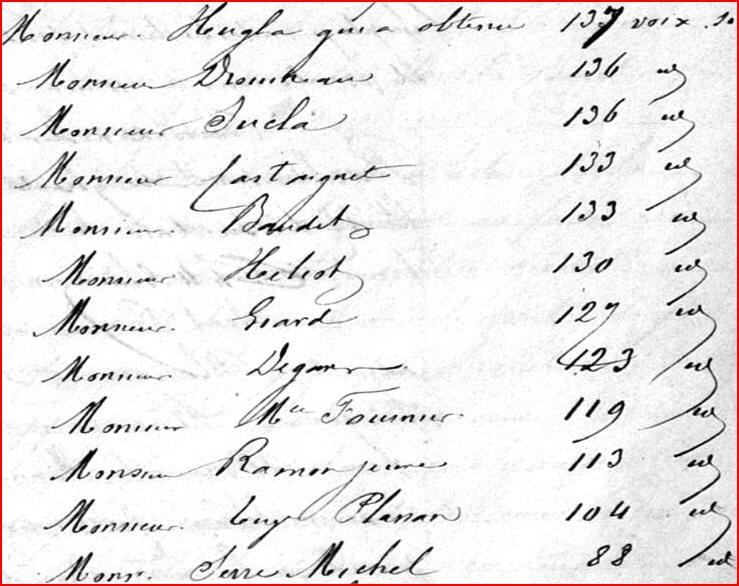 Monsieur Hugla qui a obtenu 137 voix
Monsieur Drouineau 136 id
Monsieur Sicla 136 id
Monsieur Castaignet 133 id
Monsieur Baudet 133 id
Monsieur Heliot 130 id
Monsieur Giard 127 id
Monsieur 123 id
Monsieur Fournier 119 id
Monsieur Ramon jeune 113 id
Monsieur 104 id
Monsr. Serre Michel 88 id